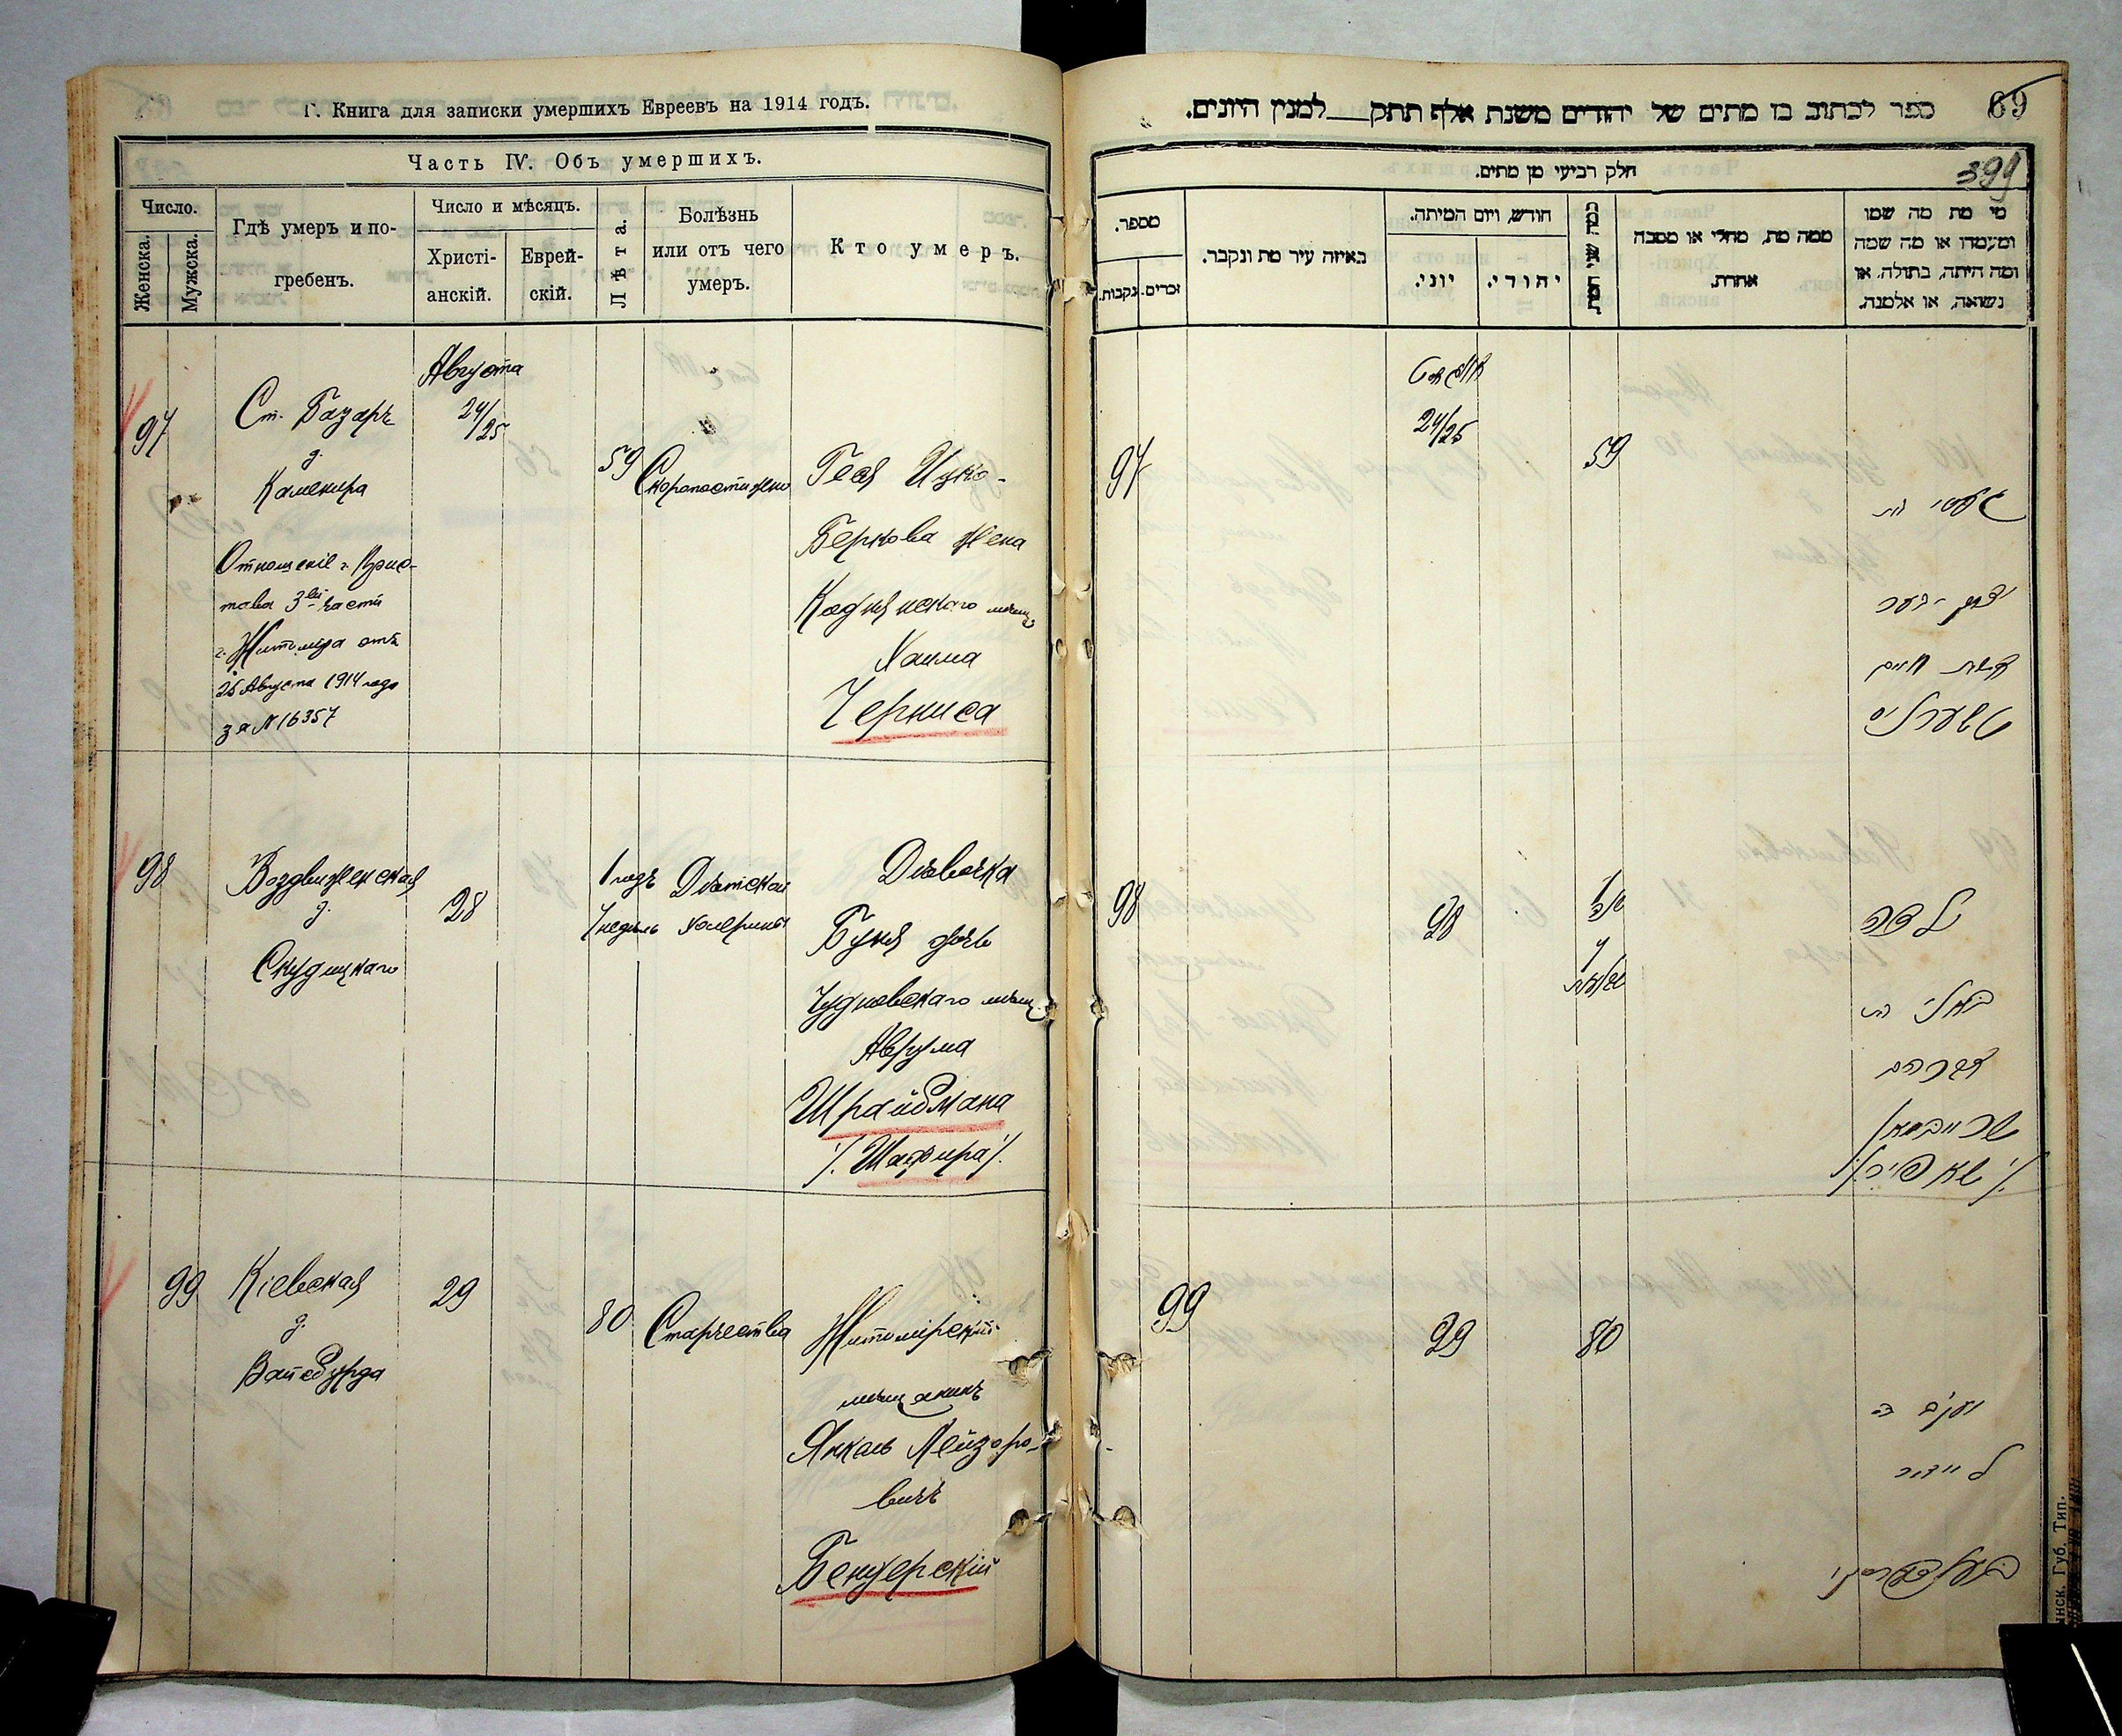 Г. Книга для записки умершихъ Евреевъ на 1914 годъ.
Часть IV. Объ умершихъ.
Число.
Женска.
Мужска.
Гдѣ умеръ и по-
гребенъ.
Число и мѣсяцъ.
Христі-
анскій.
Еврей-
скій.
Лѣта.
Болѣзнь
или отъ чего
умеръ.
Кто умеръ.
97
Ст. Базаръ
д.
Каменира
Отношеніе г. Прис-
тава 3ей части
г. Житоміра отъ
25 Августа 1914 года
за № 16357
Августа
24/25
59
Скоропостижно
Гея Ицко-
Беркова жена
Коднянскаго мѣщ.
Хаима
Черниса
98
Воздвиженская
д.
Скудицкаго
28
1 годъ
7 недѣль
Дѣтская
холерина
Дѣвочка
Буня дочь
Чудновскаго мѣщ.
Аврума
Шрайбмана
/. Шафира /.
99
Кіевская
д.
Вайсбурда
29
80
Старчества
Житомірскій
мѣщанинъ
Янкель Лейзоро-
вичъ
Бендерскій
69
ספר לכתוב בו מתים של יהודים משנת אלף תתק למנין היונים.
399
חלק רביעי מן מתים.
מספר.
נקבות.
זכרים.
באיזה עיר מת ונקבר.
חודש, ויום המיתה.
יוני.
יהודי.
כמה שני המת
ממה מת, מחלי או מסבה
אחרת.
מי מת מה שמו
ומעמדו או מה שמה
ומה היתה, בתולה, או
נשואה, או אלמנה.
97
אווגוסט
24/25
59
98
28
1
7
ילדה
בת
אברהם
שרייבמאן
/. שאפירא /.
99
29
80
יעקב ב
לייזור
בענדערסקי
нск. Губ. Тип.